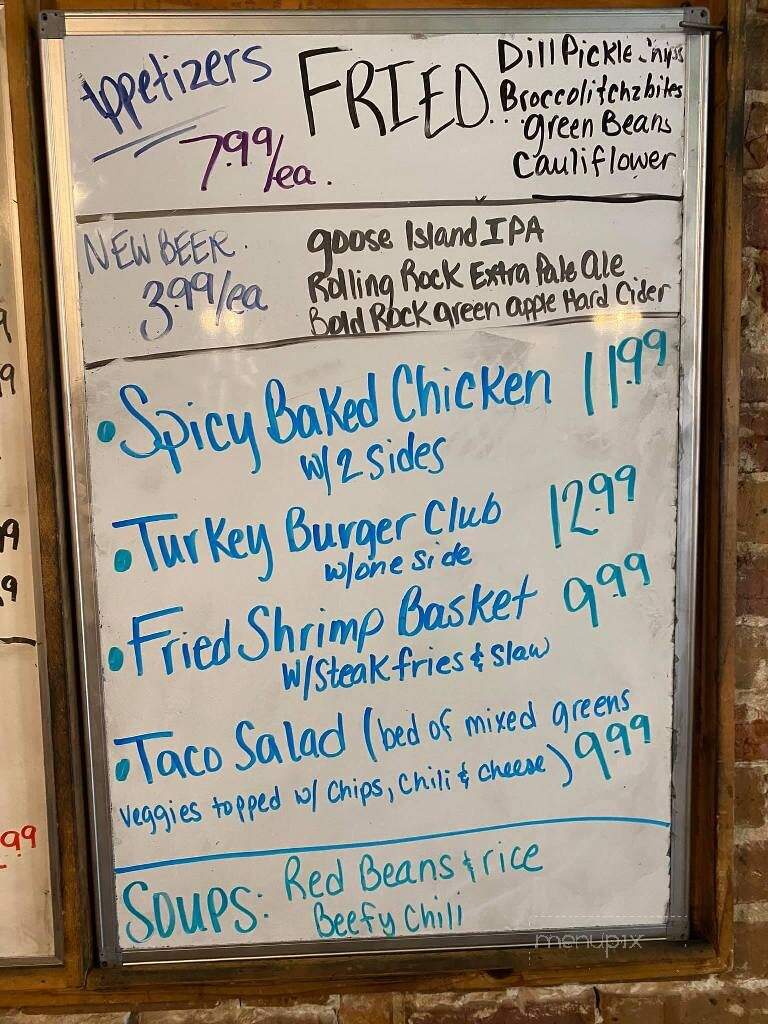 Appetizers
7.99/ea.
FRIED...
Dill Pickle
Broccoli & chz bites
green Beans
Cauliflower
NEW BEER.
3.99/ea
goose Island IPA
Rolling Rock Extra Pale Ale
Bold Rock green apple Hard Cider
• Spicy Baked Chicken 11.99
w/2 sides
• Turkey Burger Club 12.99
w/one side
• Fried Shrimp Basket 9.99
w/steak fries & slaw
• Taco Salad (bed of mixed greens
veggies topped w/ chips, chili & cheese) 9.99
SOUPS: Red Beans & rice
Beefy Chili
menupix
9
9
9
9
99